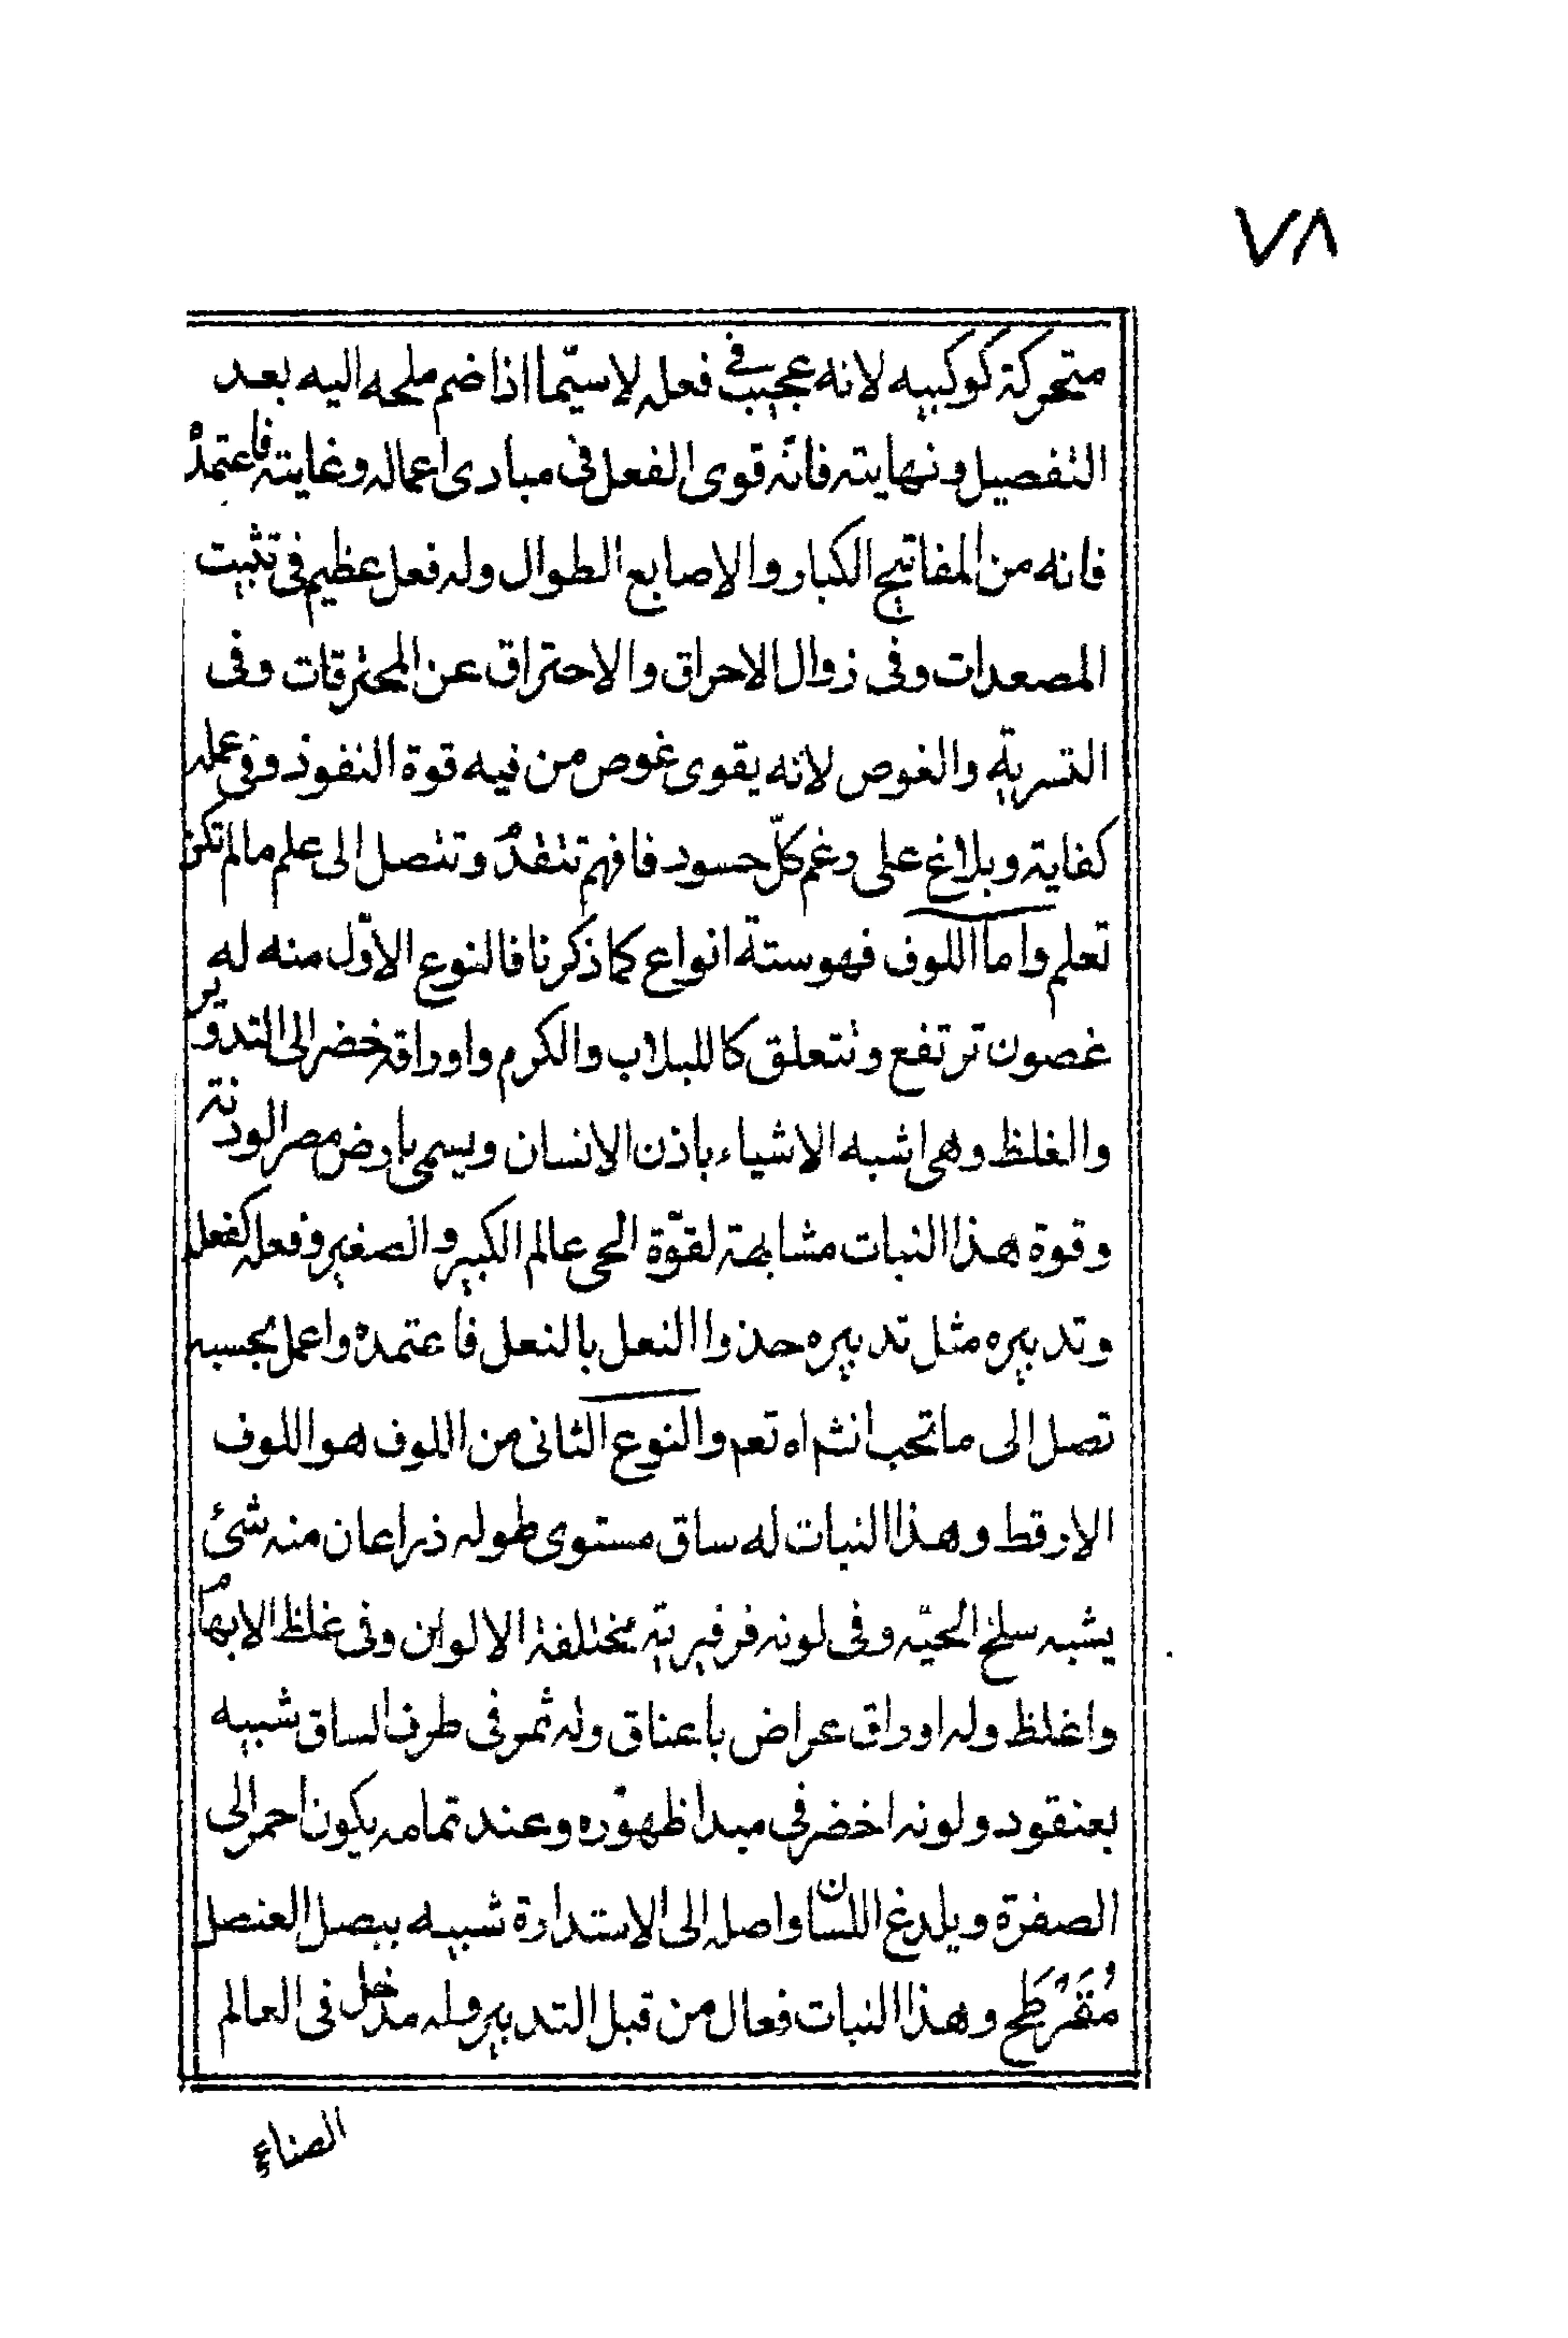 ٧٨
متحركة كوكبيه لانه عجيب في فعله لاسيّما اذا ضم ملحه اليه بعد
التفصيل ونهايته فانّه قوى الفعل فى مبادى اعماله وغايته فاعتمدْ
فانه من المفاتيح الكبار والاصابع الطوال وله فعل عظيم فى تثبيت
المصعدات وفى زوال الاحراق والاحتراق عن المحترقات وفى
التسرية والغوص لانه يقوى غوص من فيه قوة النفوذ وفى عمله
كفاية وبلاغ على رغم كلّ حسود فافهم تنقدُ وتتصل الى علم مالم تكن
تعلم واما اللوف فهو ستة انواع كما ذكرنا فالنوع الاوّل منه له
غصون ترتفع وتتعلق كاللبلاب والكرم واوراقه خضر الى التدوير
والغلظ وهى اشبه الاشياء باذن الانسان ويسمى بارض مصر الودنة
وقوة هذا النبات مشابهة لقوّة الحى عالم الكبير والصغير وفعله كفعله
وتدبيره مثل تدبيره حذوا النعل بالنعل فاعتمده واعمل بحسبه
تصل الى ما تحب انشاه تعم والنوع الثانى من اللوف هو اللوف
الارقط وهذا النبات له ساق مستوى طوله ذراعان منه شئ
يشبه سلخ الحيّه وفى لونه فرفيرية مختلفة الالوان وفى غلظ الابهام
واغلظ وله اوراق عراض باعناق وله ثمر فى طرف الساق شبيه
بعنقود ولونه اخضر فى مبدا ظهوره وعند تمامه يكون احمر الى
الصفرة ويلدغ اللسان واصله الى الاستدارة شبيه ببصل العنصل
مُقَرْطَح وهذا النبات فعال من قبل التدبير وله مدخل فى العالم
الصناع